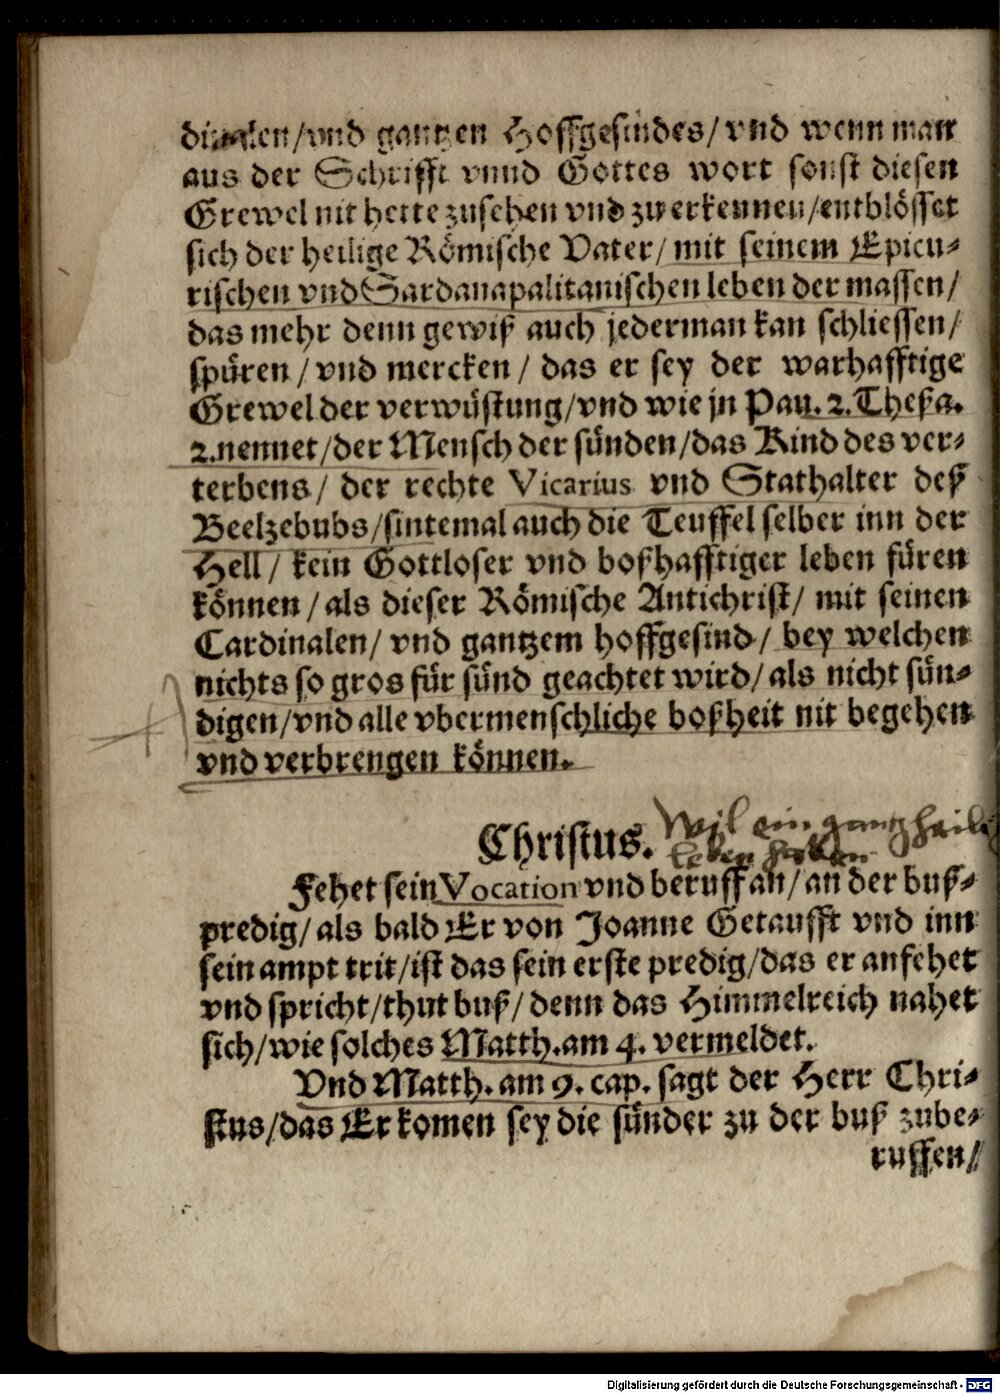 dinalen/vnd gantzen Hoffgesindes/vnd wenn man
aus der Schrifft vnnd Gottes wort sonst diesen
Grewel nit hette zusehen vnd zu erkennen/entblösset
sich der heilige Römische Vater/mit seinem Epicu-
rischen vnd Sardanapalitanischen leben der massen/
das mehr denn gewiß auch jederman kan schliessen/
spüren/vnd mercken/das er sey der warhafftige
Grewel der verwüstung/vnd wie jn Pau. 2. Theßa.
2. nennet/der Mensch der sünden/das Kind des ver-
terbens/der rechte Vicarius vnd Stathalter deß
Beelzebubs/sintemal auch die Teuffel selber inn der
Hell/kein Gottloser vnd boßhafftiger leben füren
können/als dieser Römische Antichrist/mit seinen
Cardinalen/vnd gantzem hoffgesind/bey welchen
nichts so gros für sünd geachtet wird/als nicht sün-
digen/vnd alle vbermenschliche boßheit nit begehen
vnd verbrengen können.
Christus. Wil ein gantz heilig
leben
Fehet sein Vocation vnd beruff an/an der buß-
predig/als bald Er von Joanne Getaufft vnd inn
sein ampt trit/ist das sein erste predig/das er anfehet
vnd spricht/thut buß/denn das Himmelreich nahet
sich/wie solches Matth. am 4. vermeldet.
Vnd Matth. am 9. cap. sagt der Herr Chri-
stus/das Er komen sey die sünder zu der buß zube-
ruffen/
Digitalisierung gefördert durch die Deutsche Forschungsgemeinschaft - DFG